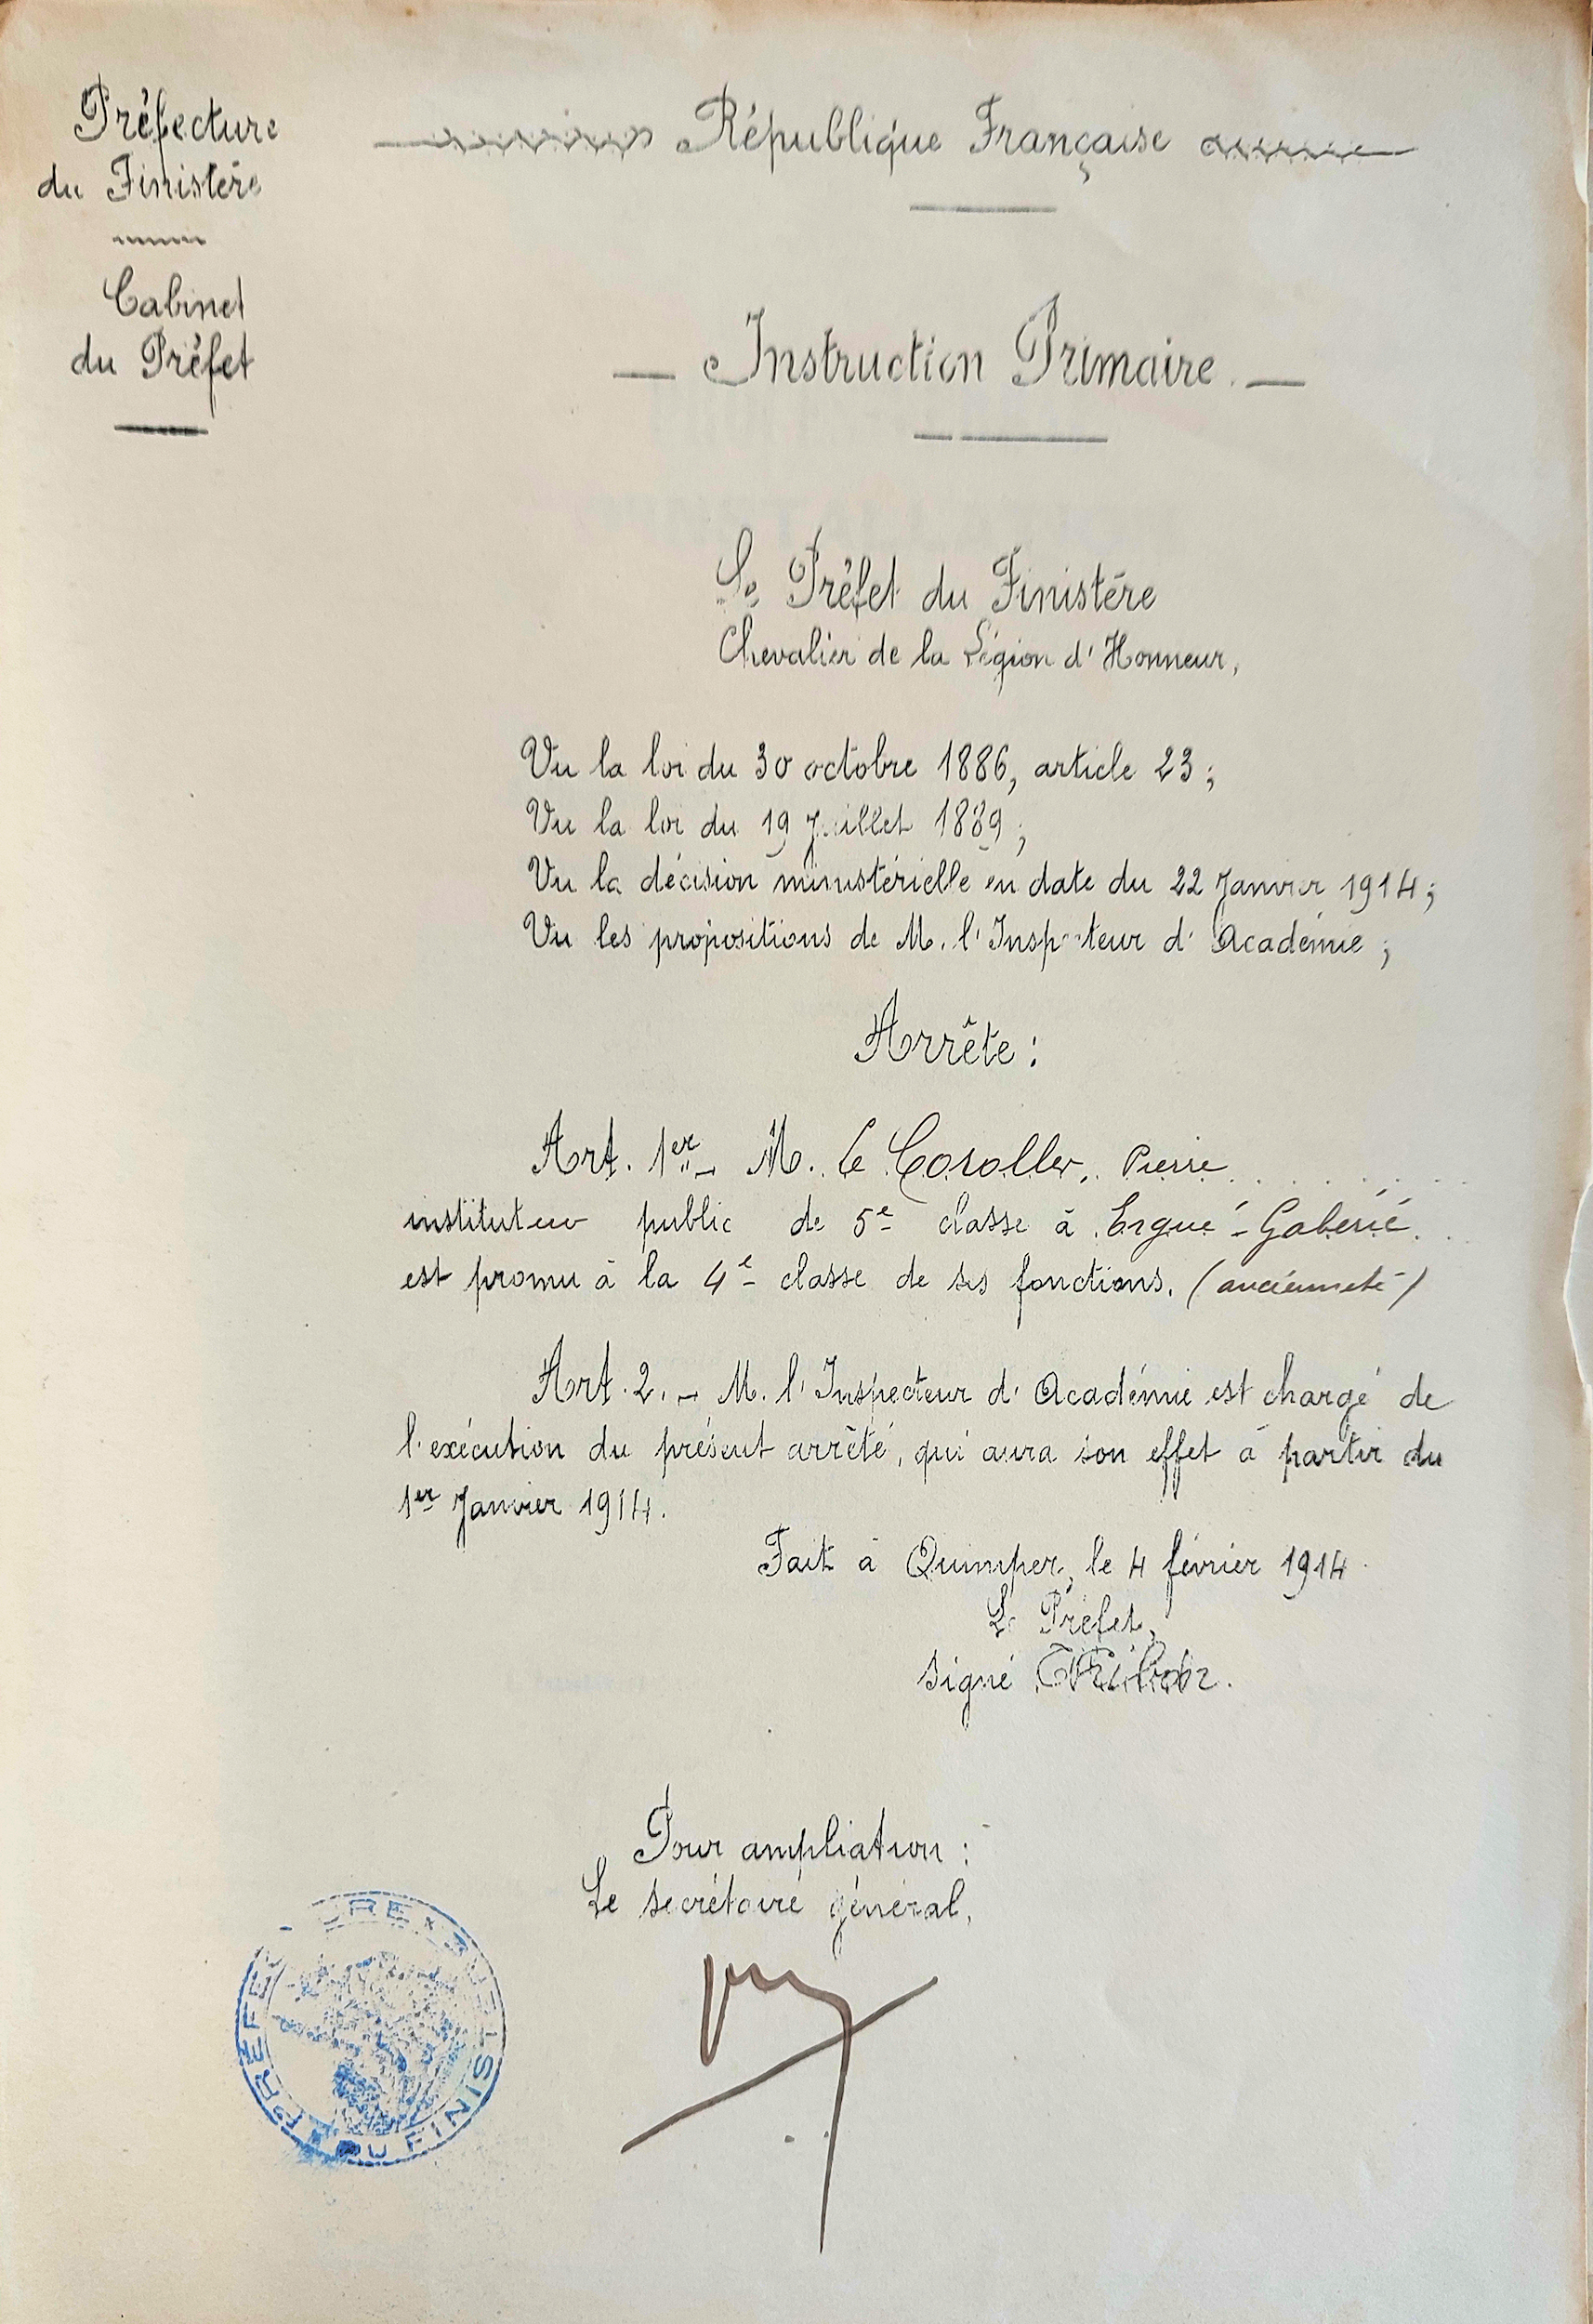 Préfecture
du Finistère
Cabinet
du Préfet
République Française
— Instruction Primaire. —
Le Préfet du Finistère
Chevalier de la Légion d'Honneur,
Vu la loi du 30 octobre 1886, article 23;
Vu la loi du 19 Juillet 1889;
Vu la décision ministérielle en date du 22 Janvier 1914;
Vu les propositions de M. l'Inspecteur d'Académie;
Arrête:
Art. 1er - M. Le Coroller, Pierre
instituteur public de 5e classe à Ergué-Gabéric
est promu à la 4e classe de ses fonctions. (ancienneté)
Art. 2. - M. l'Inspecteur d'Académie est chargé de
l'exécution du présent arrêté, qui aura son effet à partir du
1er Janvier 1914.
Fait à Quimper, le 4 février 1914.
Le Préfet,
signé
Pour ampliation:
Le secrétaire général,
PREFECTURE DU FINISTERE